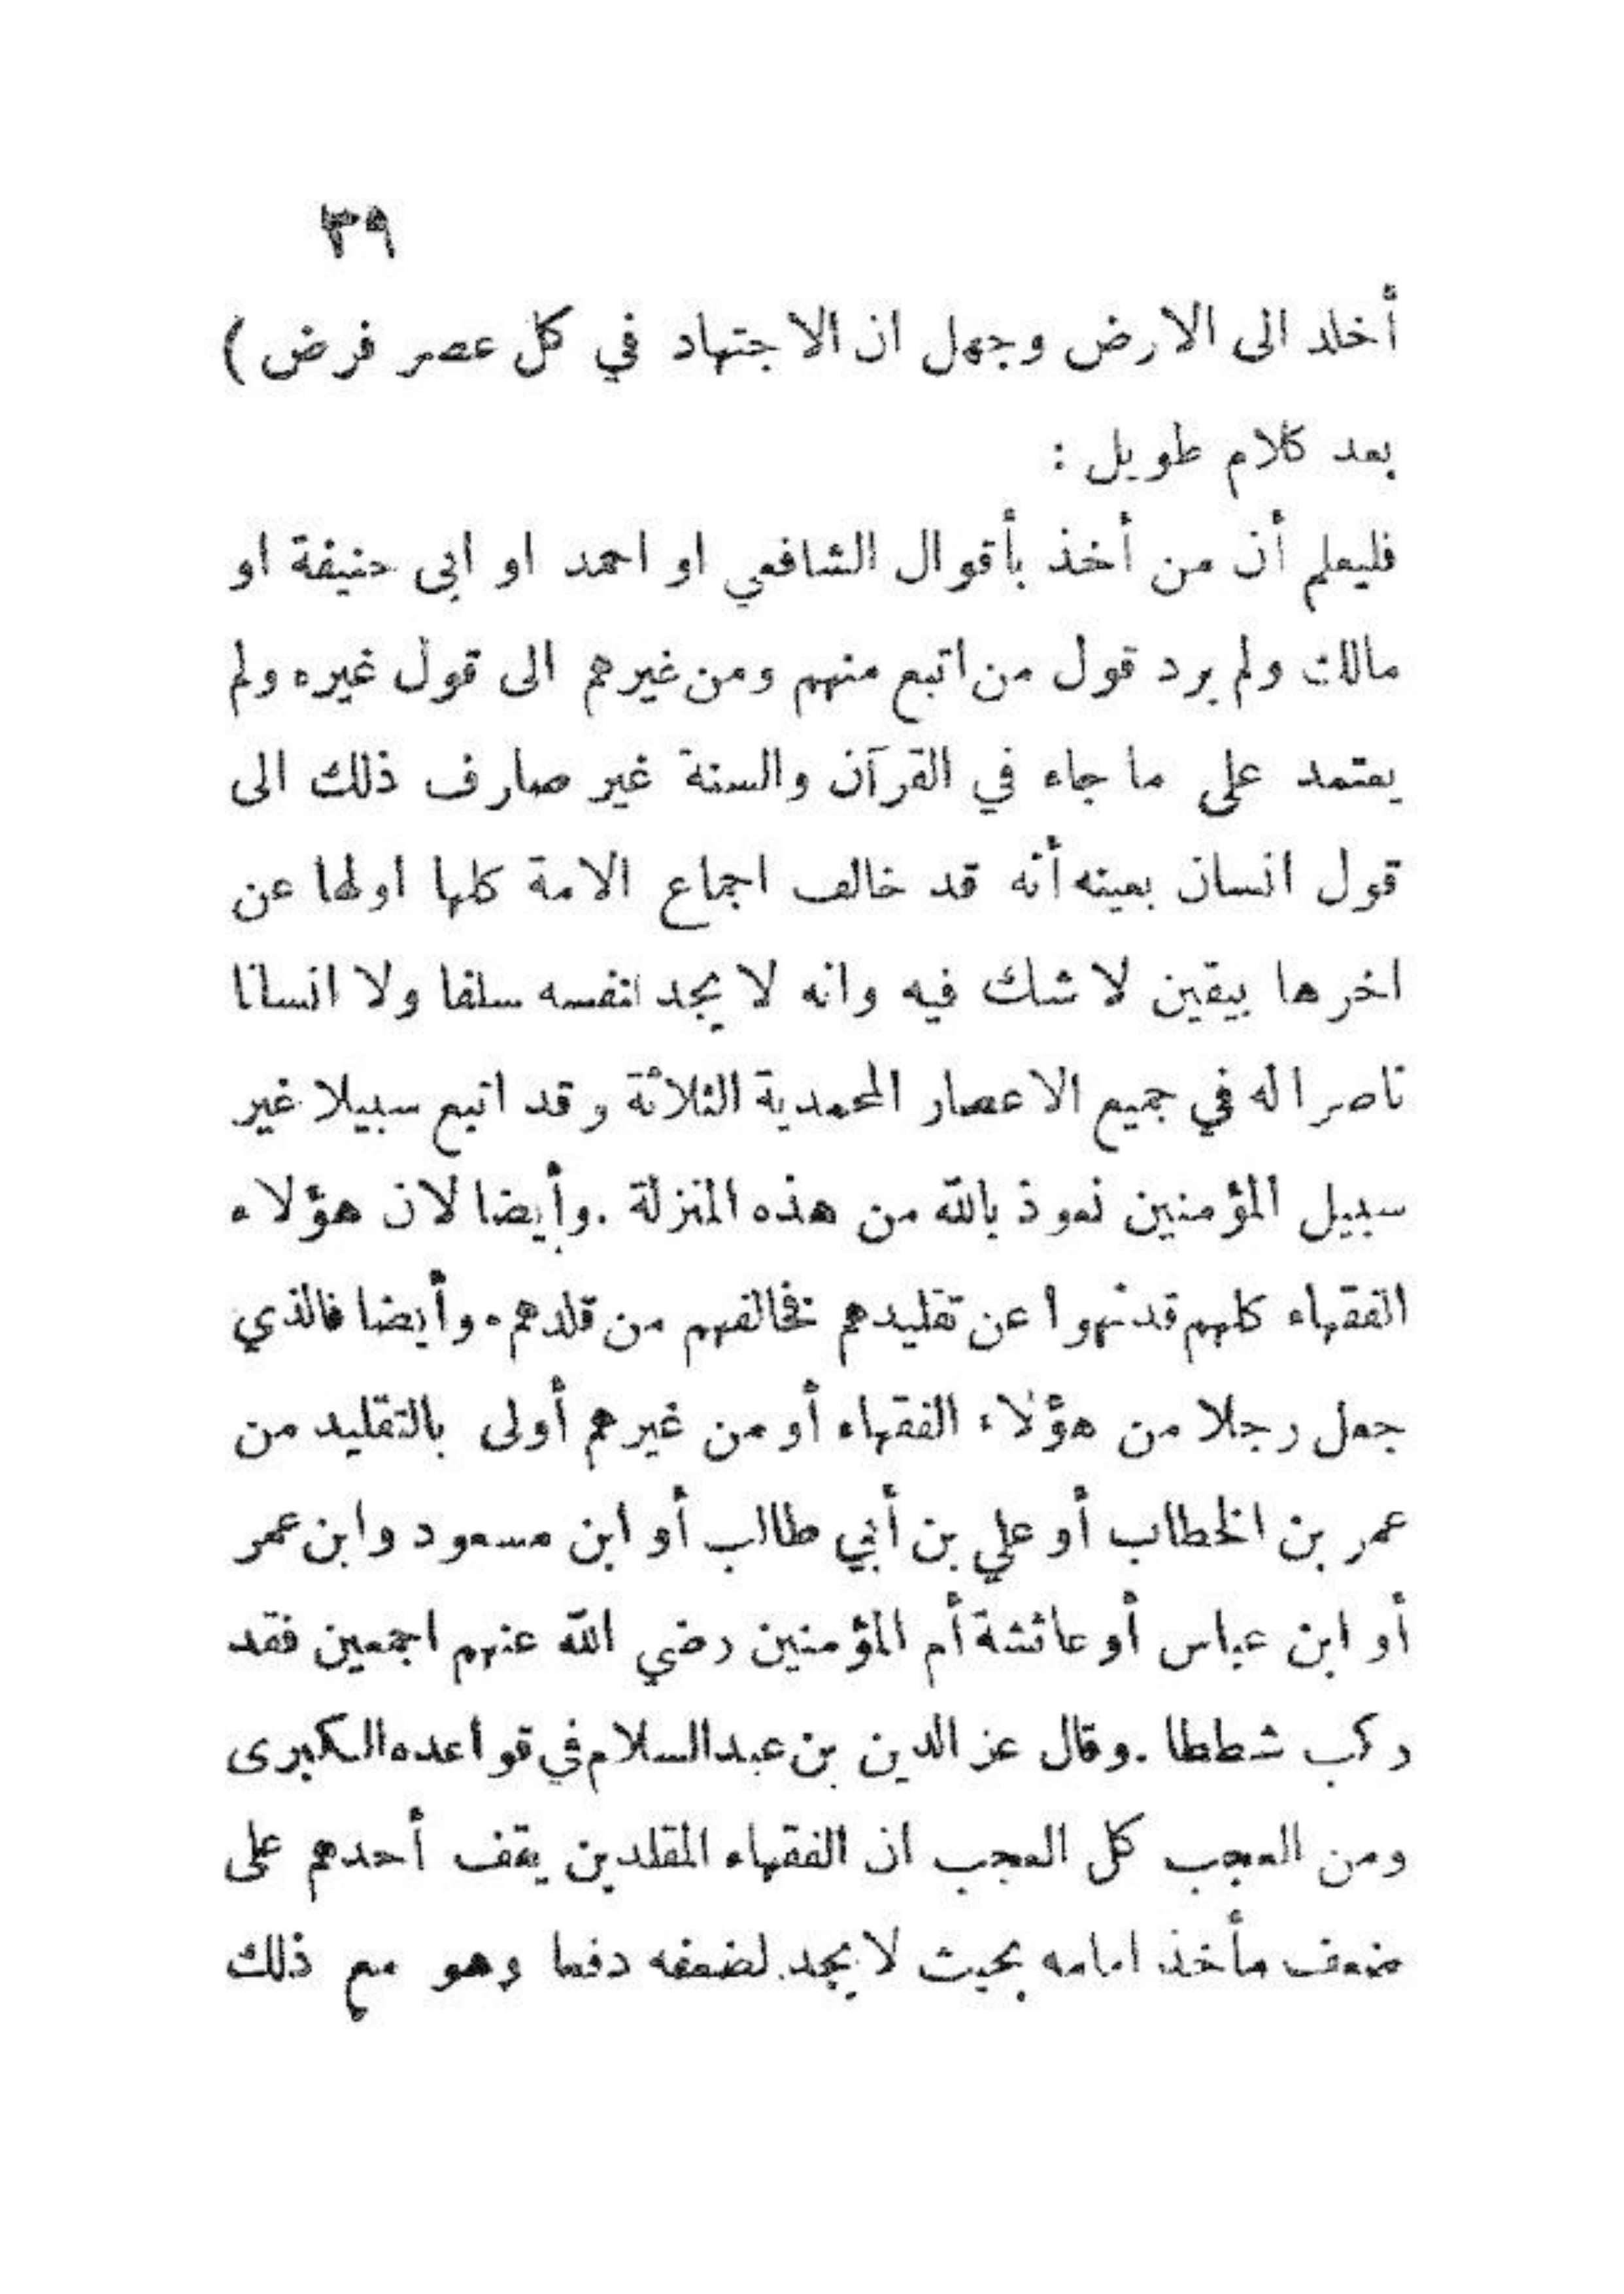 ٣٩
أخلد الى الارض وجهل ان الاجتهاد في كل عصر فرض )
بعد كلام طويل :
فليعلم أن من أخذ بأقوال الشافعي او احمد او ابى حنيفة او
مالك ولم يرد قول من اتبع منهم ومن غيرهم الى قول غيره ولم
يعتمد على ما جاء في القرآن والسنة غير صارف ذلك الى
قول انسان بعينه أنه قد خالف اجماع الامة كلها اولها عن
اخرها بيقين لا شك فيه وانه لا يجد لنفسه سلفا ولا انسانا
ناصرا له في جميع الاعصار المحمدية الثلاثة وقد اتبع سبيلا غير
سبيل المؤمنين نعوذ بالله من هذه المنزلة .وأيضا لان هؤلاء
الفقهاء كلهم قد نهوا عن تقليدهم فخالفهم من قلدهم. وأيضا فالذي
جعل رجلا من هؤلاء الفقهاء أو من غيرهم أولى بالتقليد من
عمر بن الخطاب أو علي بن أبي طالب أو ابن مسعود وابن عمر
أو ابن عباس أو عائشة أم المؤمنين رضي الله عنهم اجمعين فقد
ركب شططا .وقال عز الدين بن عبد السلام في قواعده الكبرى
ومن العجب كل العجب ان الفقهاء المقلدين يقف أحدهم على
ضعف مأخذ امامه بحيث لا يجد لضعفه دفعا وهو مع ذلك